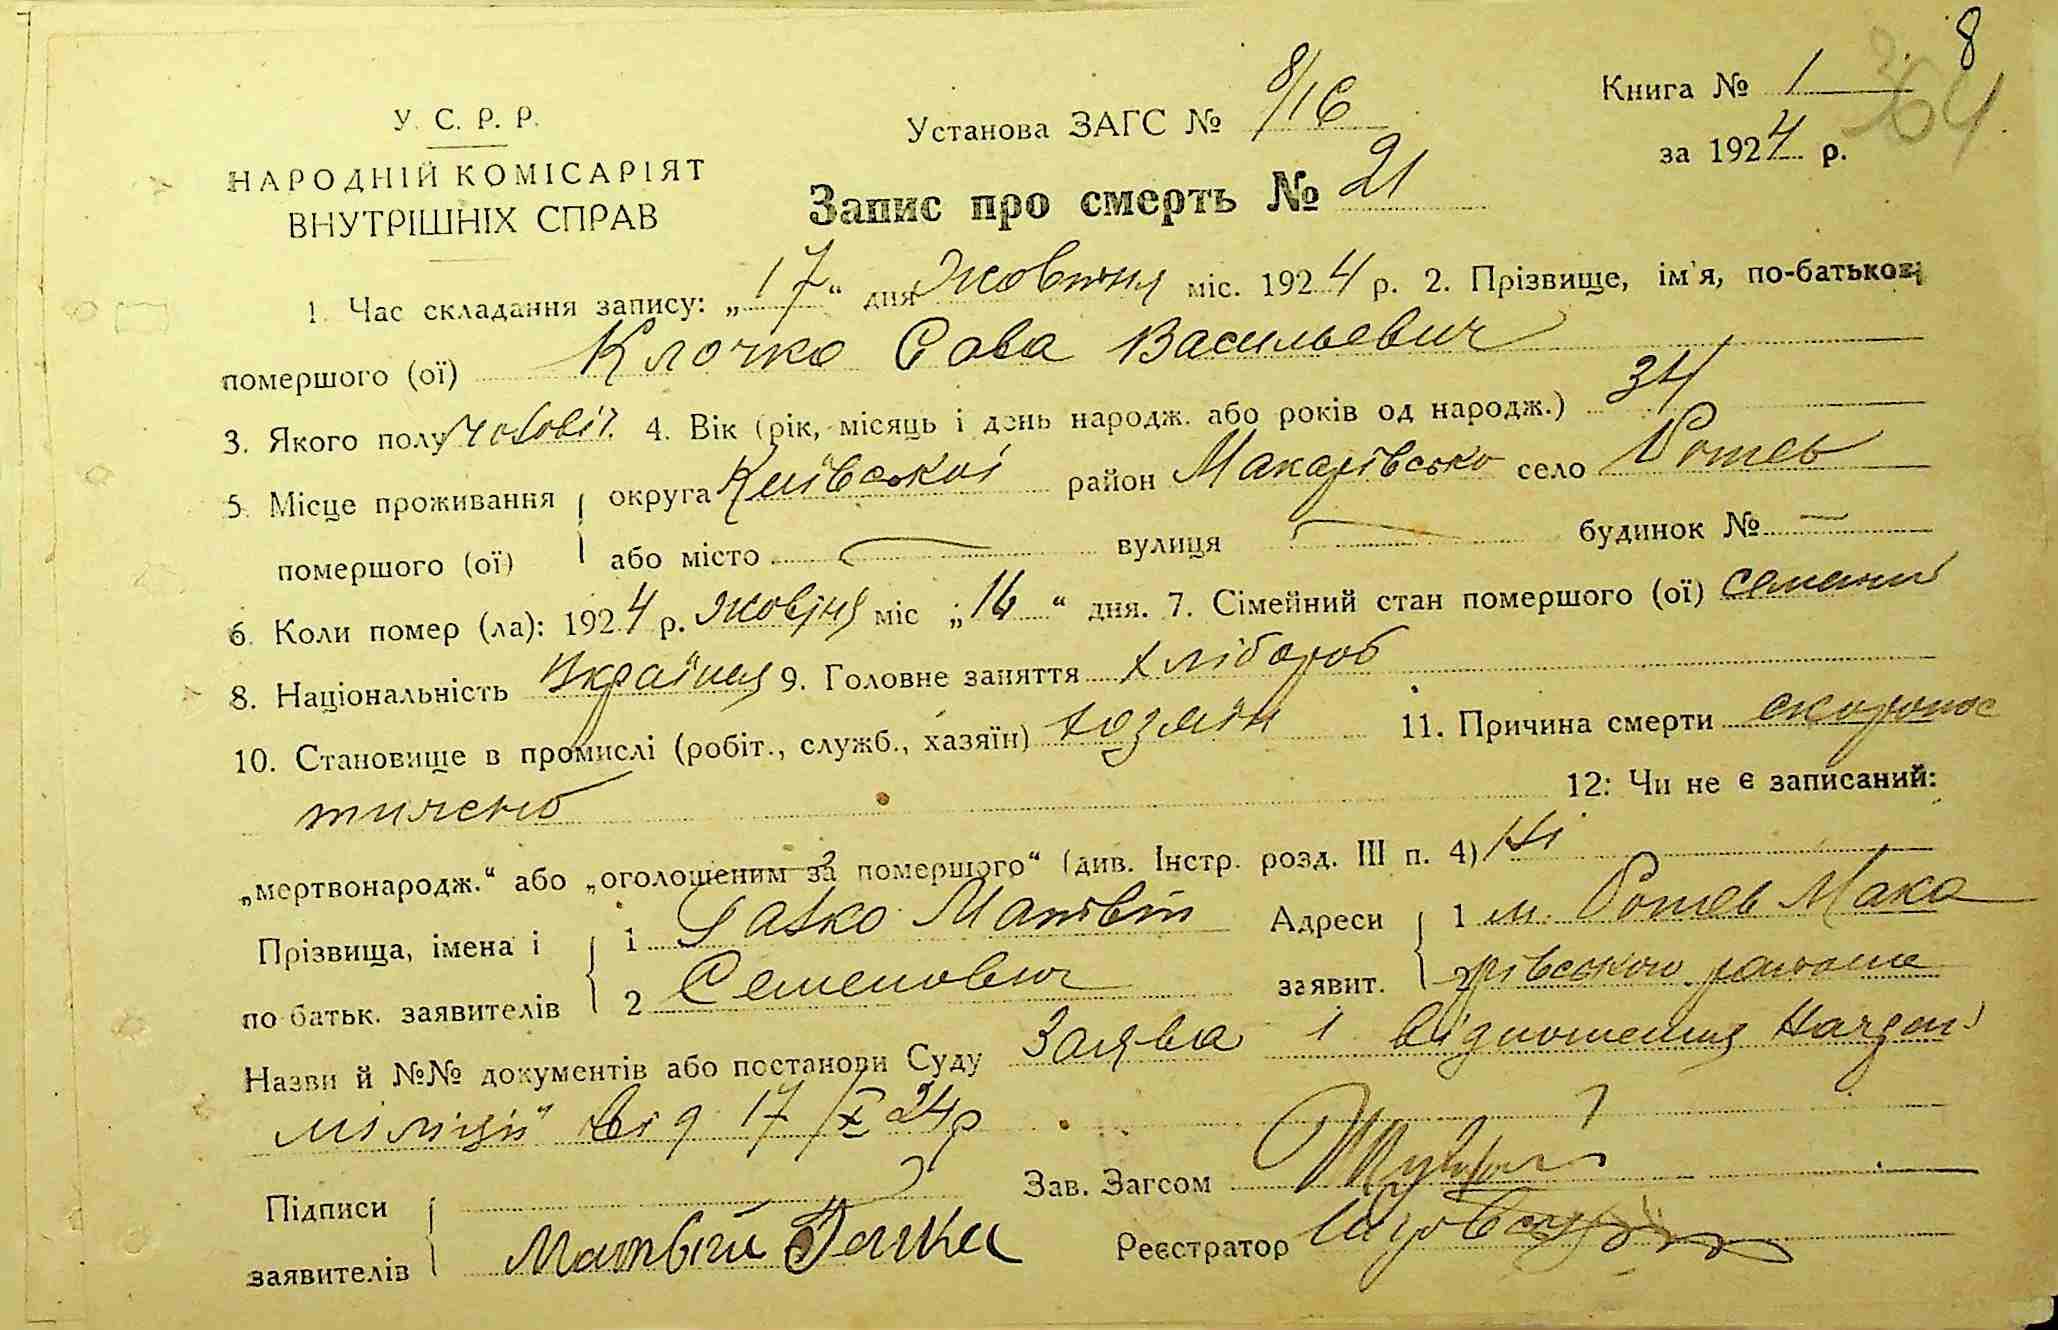 8
364
У. С. Р. Р.
НАРОДНІЙ КОМІСАРІЯТ
ВНУТРІШНІХ СПРАВ
Установа ЗАГС № 8/16
Книга № 1
за 1924 р.
Запис про смерть № 21
1. Час складання запису: „17“ дня Жовтня міс. 1924 р. 2. Прізвище, ім'я, по-батькові
помершого (ої) Клочко Сава Васильевич
3. Якого полу чоловіч. 4. Вік (рік, місяць і день народж. або років од народж.) 34
5. Місце проживання округа Київської район Макарівсько село
помершого (ої) або місто — вулиця — будинок № —
6. Коли помер (ла): 1924 р. Жовтня міс „16“ дня. 7. Сімейний стан помершого (ої)
8. Національність Українец 9. Головне заняття хлібороб
10. Становище в промислі (робіт., служб., хазяїн) хозяїн 11. Причина смерти скоропос
тижено
12: Чи не є записаний:
„мертвонародж.“ або „оголошеним за помершого“ (див. Інстр. розд. III п. 4) Ні
Прізвища, імена і 1 Матвій Адреси 1 м. Мака
по-батьк. заявителів 2 Семенович заявит. 2 рівського района
Назви й №№ документів або постанови Суду Заява і відношення
міліції від 17/X 24р
Підписи
Зав. Загсом
заявителів Матвій
Реєстратор